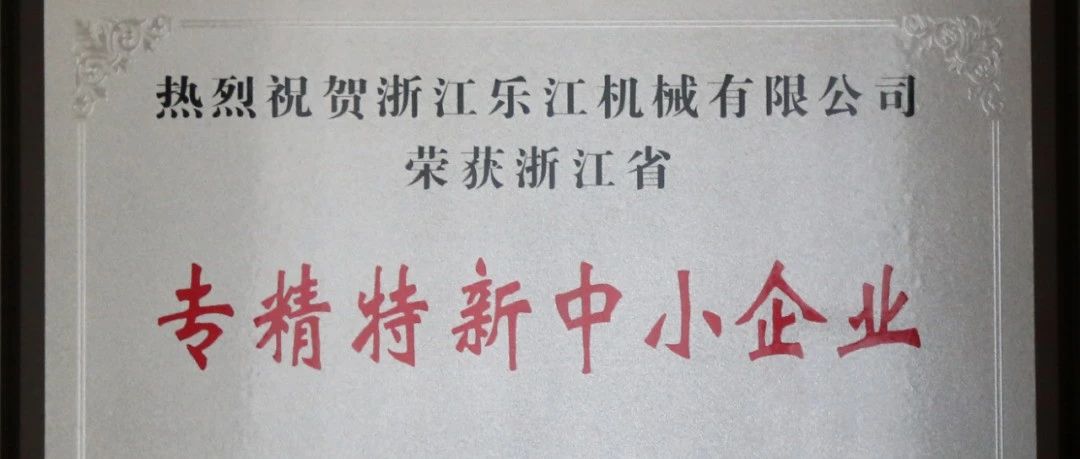 热烈祝贺浙江乐江机械有限公司
荣获浙江省
专精特新中小企业